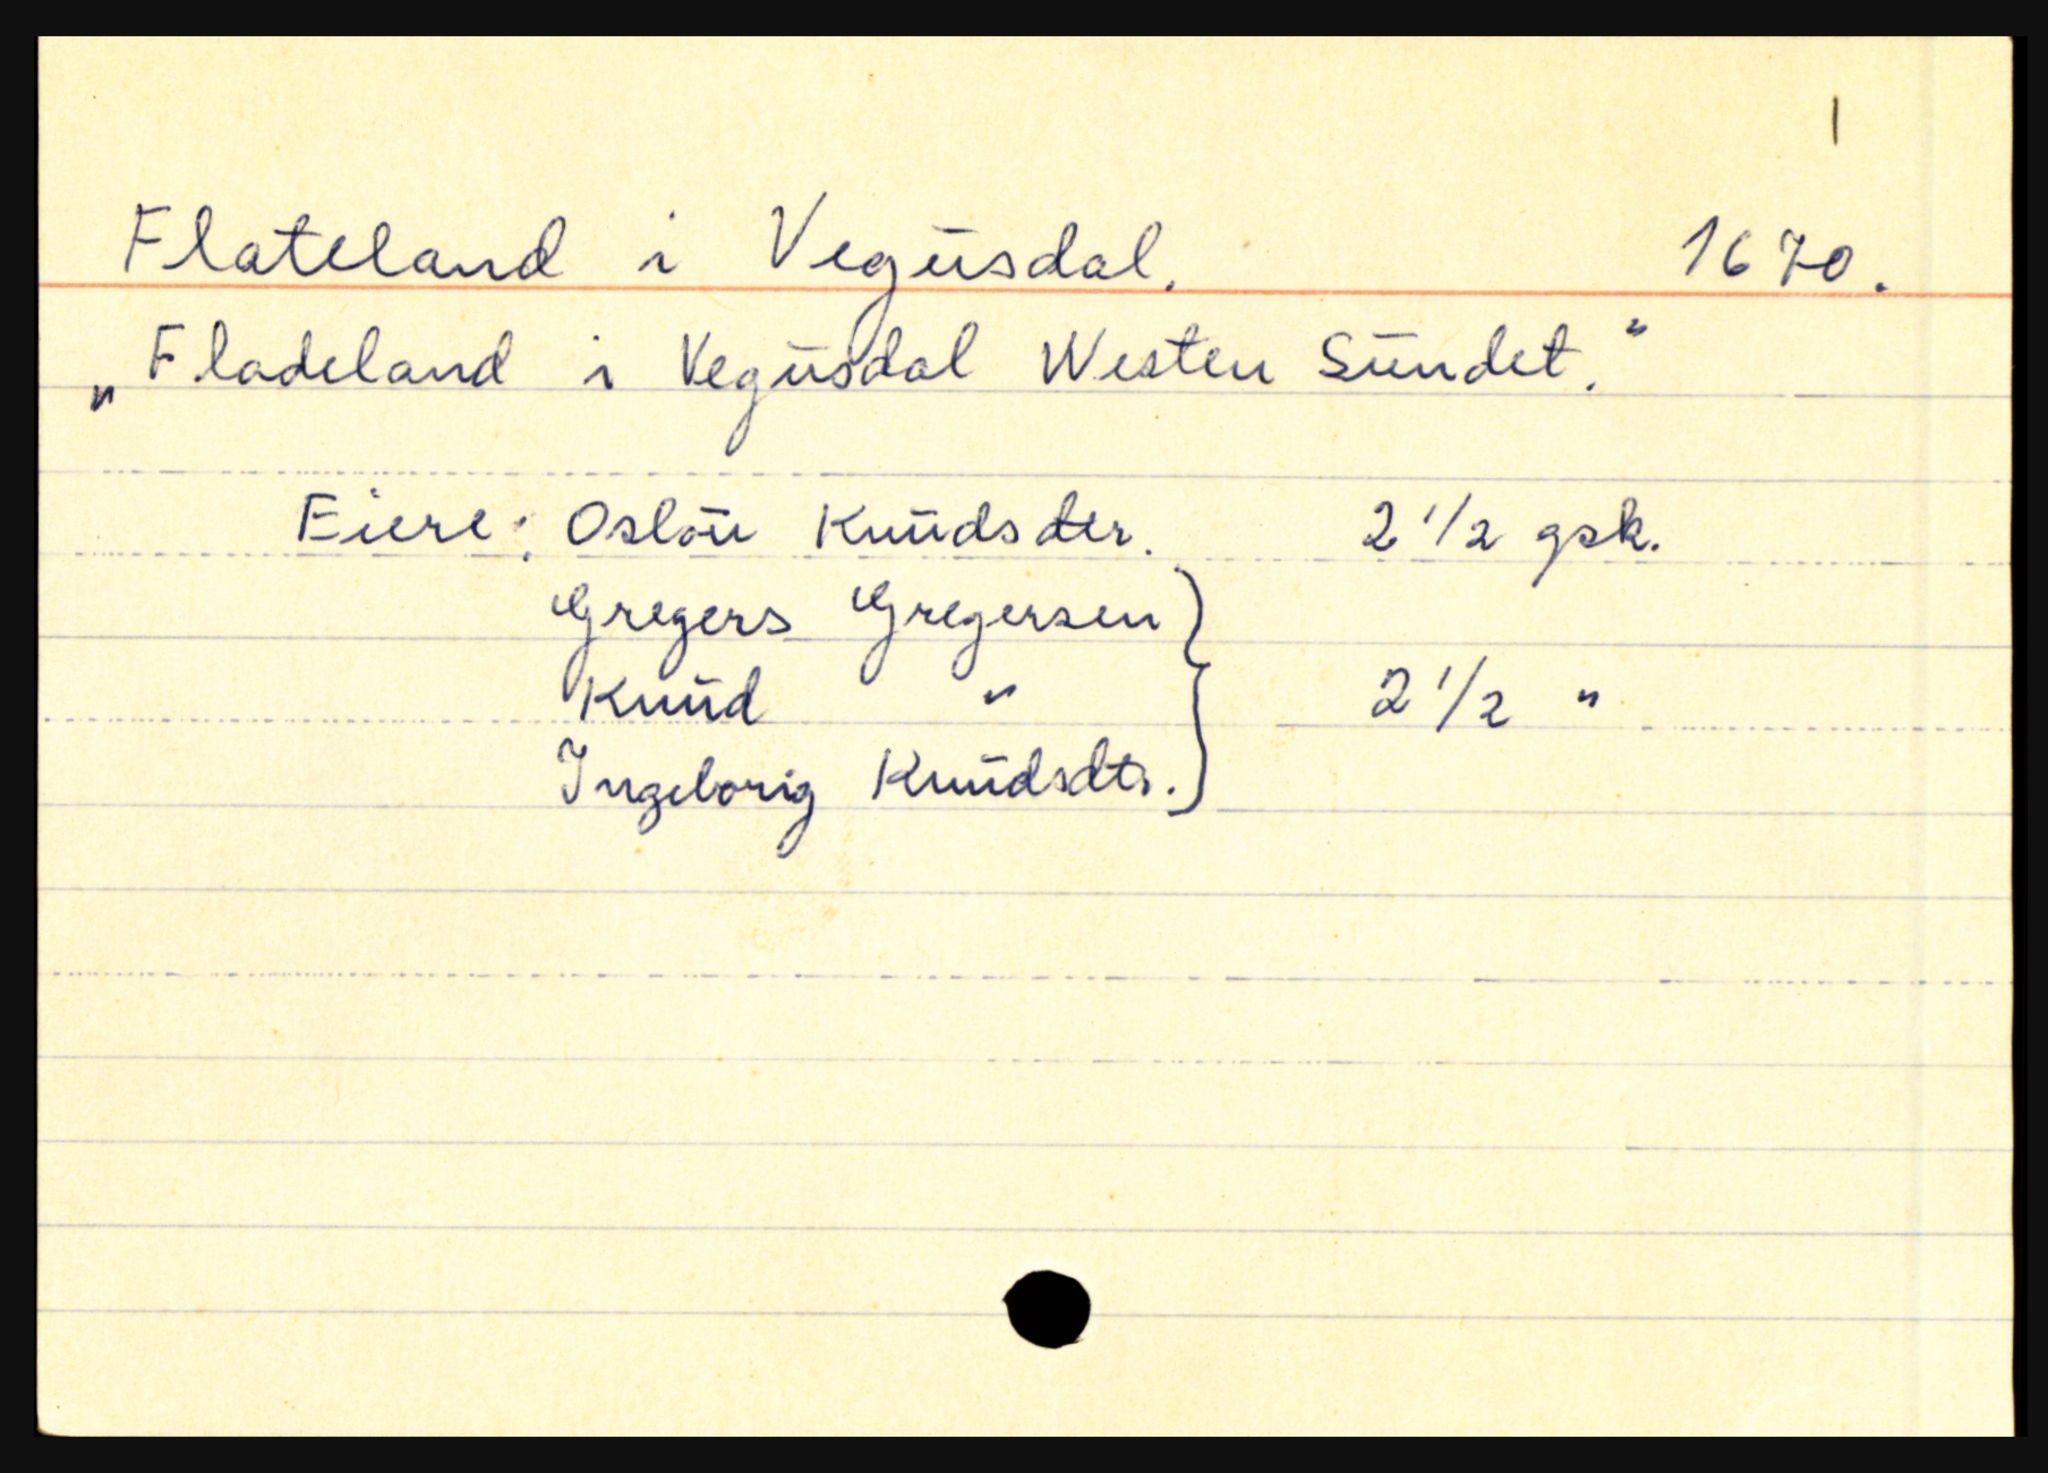 1
Flateland i Vegusdal. 1670.
„Fladeland i Vegusdal Westen Sundet."
Eiere: Oslou Knudsdtr. 2 1/2 gsk.
Gregers Gregersen
Knud " 2 1/2 "
Ingeborig Knudsdtr.